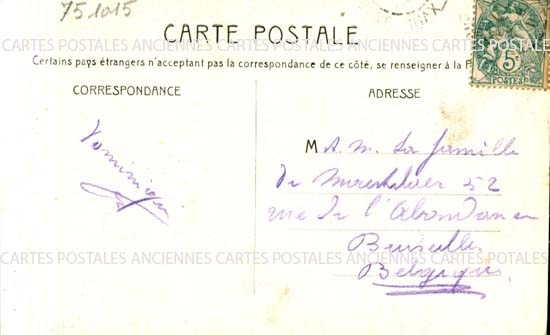 751015
CARTE POSTALE
CARTES POSTALES ANCIENNES CARTES POSTALES ANCIENNES CARTES POSTALES ANCIENNES
Certains pays étrangers n'acceptant pas la correspondance de ce côté, se renseigner à la P
5c
POSTES
CORRESPONDANCE
ADRESSE
Dominique
M A. M. La famille
de 52
rue de l'Abondance
Bruxelles
Belgique
CARTES POSTALES ANCIENNES CARTES POSTALES ANCIENNES CARTES POSTALES ANCIENNES